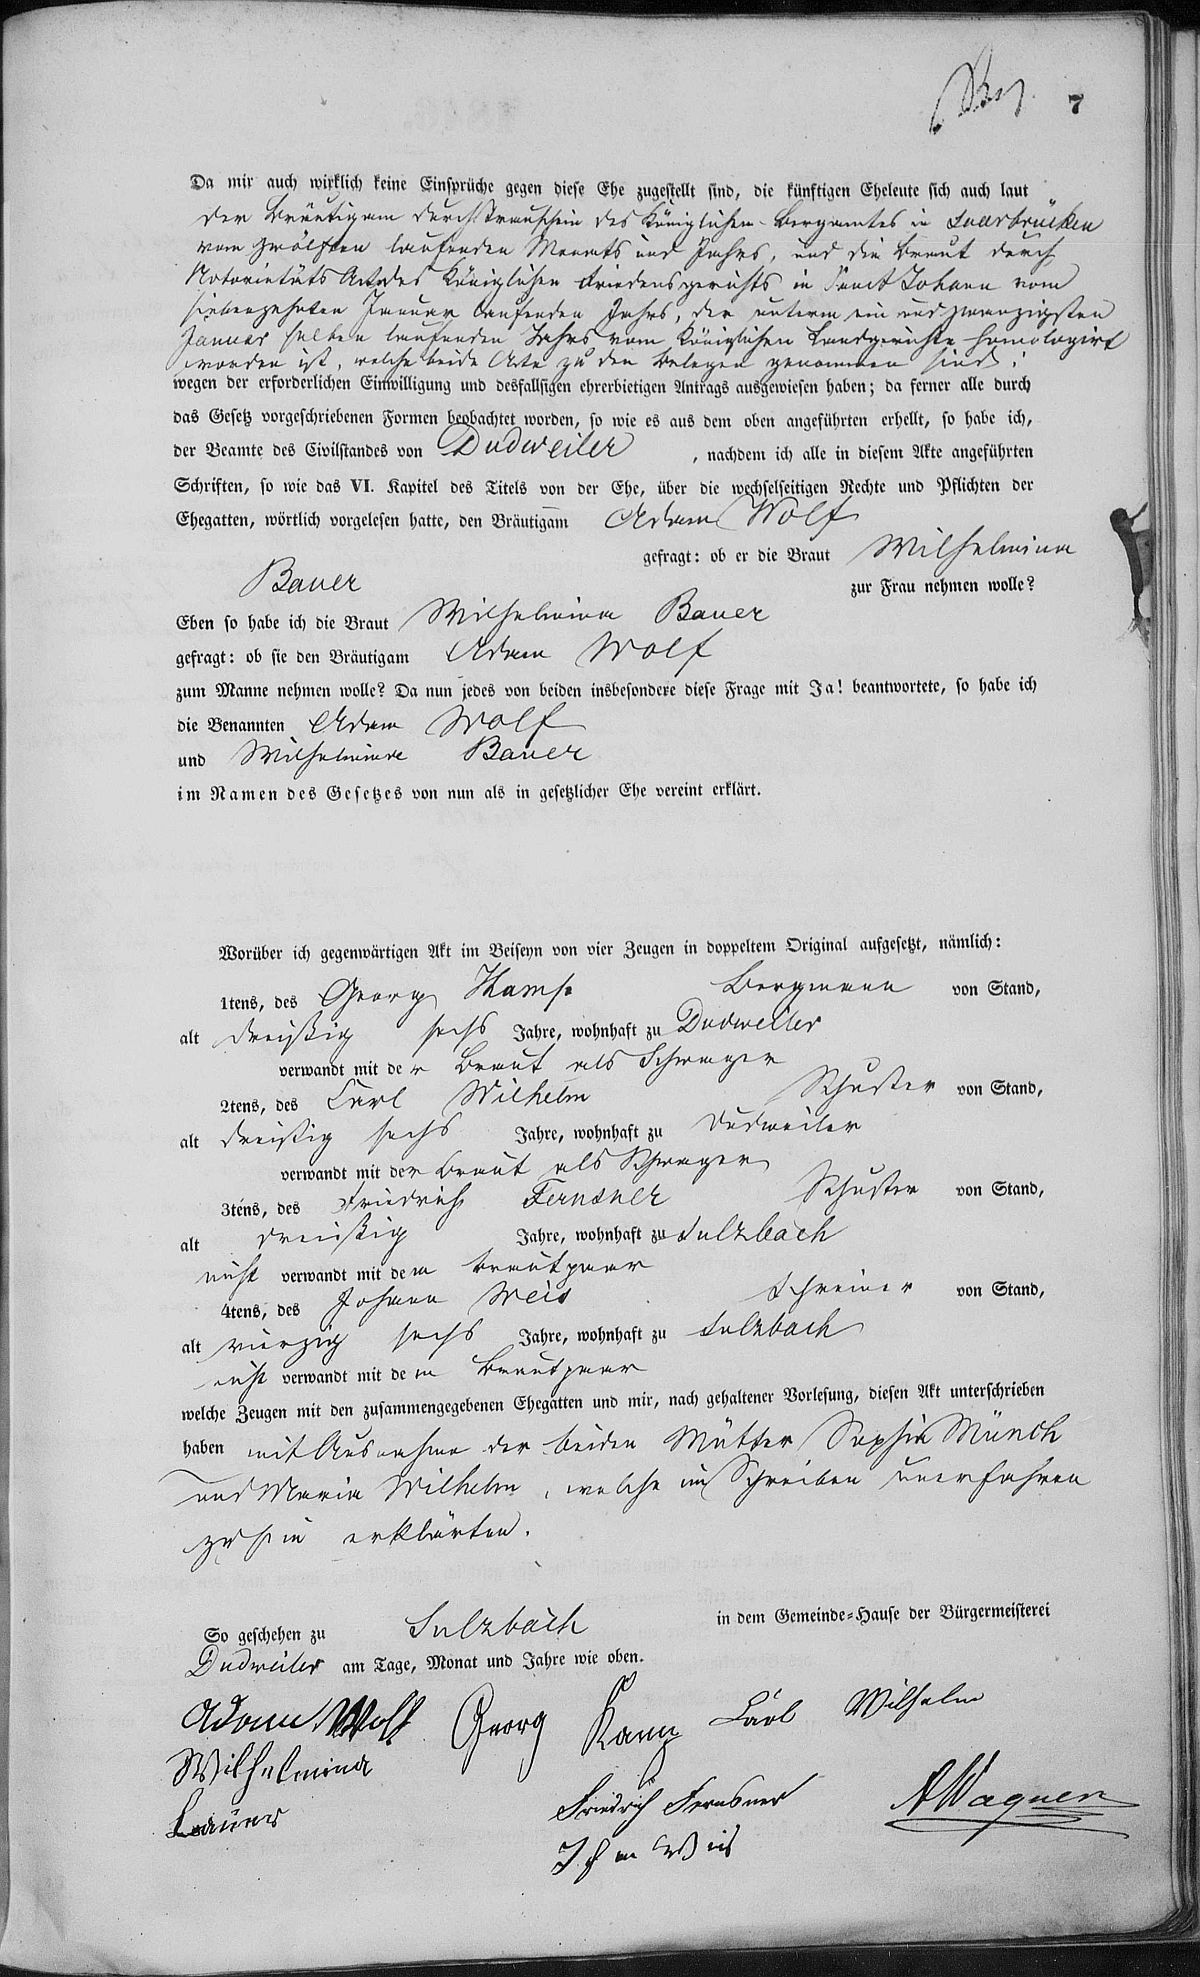 7
Da mir auch wirklich keine Einsprüche gegen diese Ehe zugestellt sind, die künftigen Eheleute sich auch laut
der Bräutigam durch Trauschein des Königlichen Bergamtes in Saarbrücken
vom zwölften laufenden Monats und Jahrs, und die Braut durch
Notorietäts Act des Königlichen Friedensgerichts in Sanct Johann vom
siebenzehnten Januar laufenden Jahrs, der unterm ein und zwanzigsten
Januar selben laufenden Jahrs vom Königlichen Landgerichte homologirt
worden ist, welche beide Acte zu den Belegen genommen sind;
wegen der erforderlichen Einwilligung und desfallsigen ehrerbietigen Antrags ausgewiesen haben; da ferner alle durch
das Gesetz vorgeschriebenen Formen beobachtet worden, so wie es aus dem oben angeführten erhellt, so habe ich,
der Beamte des Civilstandes von Dudweiler , nachdem ich alle in diesem Akte angeführten
Schriften, so wie das VI. Kapitel des Titels von der Ehe, über die wechselseitigen Rechte und Pflichten der
Ehegatten, wörtlich vorgelesen hatte, den Bräutigam Adam Wolf
gefragt: ob er die Braut Wilhelmina
Bauer zur Frau nehmen wolle?
Eben so habe ich die Braut Wilhelmina Bauer
gefragt: ob sie den Bräutigam Adam Wolf
zum Manne nehmen wolle? Da nun jedes von beiden insbesondere diese Frage mit Ja! beantwortete, so habe ich
die Benannten Adam Wolf
und Wilhelmine Bauer
im Namen des Gesetzes von nun als in gesetzlicher Ehe vereint erklärt.
Worüber ich gegenwärtigen Akt im Beiseyn von vier Zeugen in doppeltem Original aufgesetzt, nämlich:
1tens, des Georg Bergmann von Stand,
alt dreißig sechs Jahre, wohnhaft zu Dudweiler
verwandt mit der Braut als Schwager
2tens, des Carl Wilhelm Schuster von Stand,
alt dreißig sechs Jahre, wohnhaft zu Dudweiler
verwandt mit der Braut als Schwager
3tens, des Friedrich Fernsner Schuster von Stand,
alt dreißig Jahre, wohnhaft zu Sulzbach
nicht verwandt mit dem Brautpaar
4tens, des Johann Weis Schreiner von Stand,
alt vierzig sechs Jahre, wohnhaft zu Sulzbach
nicht verwandt mit dem Brautpaar
welche Zeugen mit den zusammengegebenen Ehegatten und mir, nach gehaltener Vorlesung, diesen Akt unterschrieben
haben mit Ausnahme der beiden Mütter Sophia Münch
und Maria Wilhelm, welche im Schreiben unerfahren
zu sein erklärten.
So geschehen zu Sulzbach in dem Gemeinde-Hause der Bürgermeisterei
Dudweiler am Tage, Monat und Jahre wie oben.
Adam Wolf Georg Kamp Carl Wilhelm
Wilhelmina
Bauer Friedrich Fernsner AWagner
Johann Weis